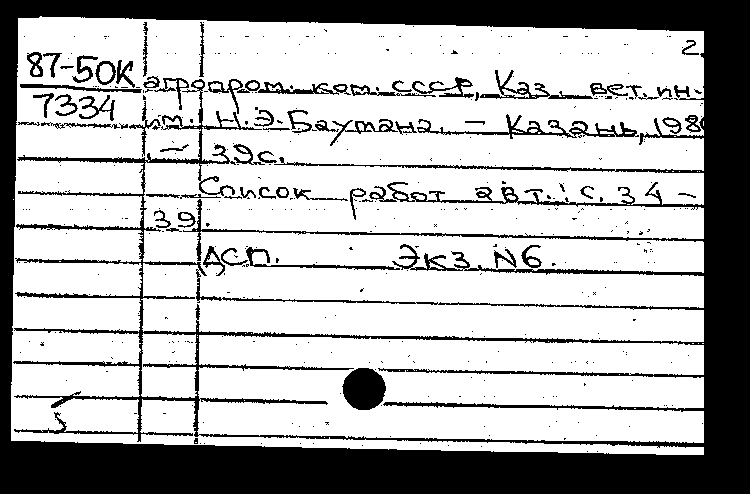 2.
87-50К агропром. ком. СССР, Каз. вет. ин-
7334 им. Н.Э.Баумана. — Казань, 198
. — 39с.
Список работ авт.: с. 34 –
39.
ДСП. Экз. №6.
5